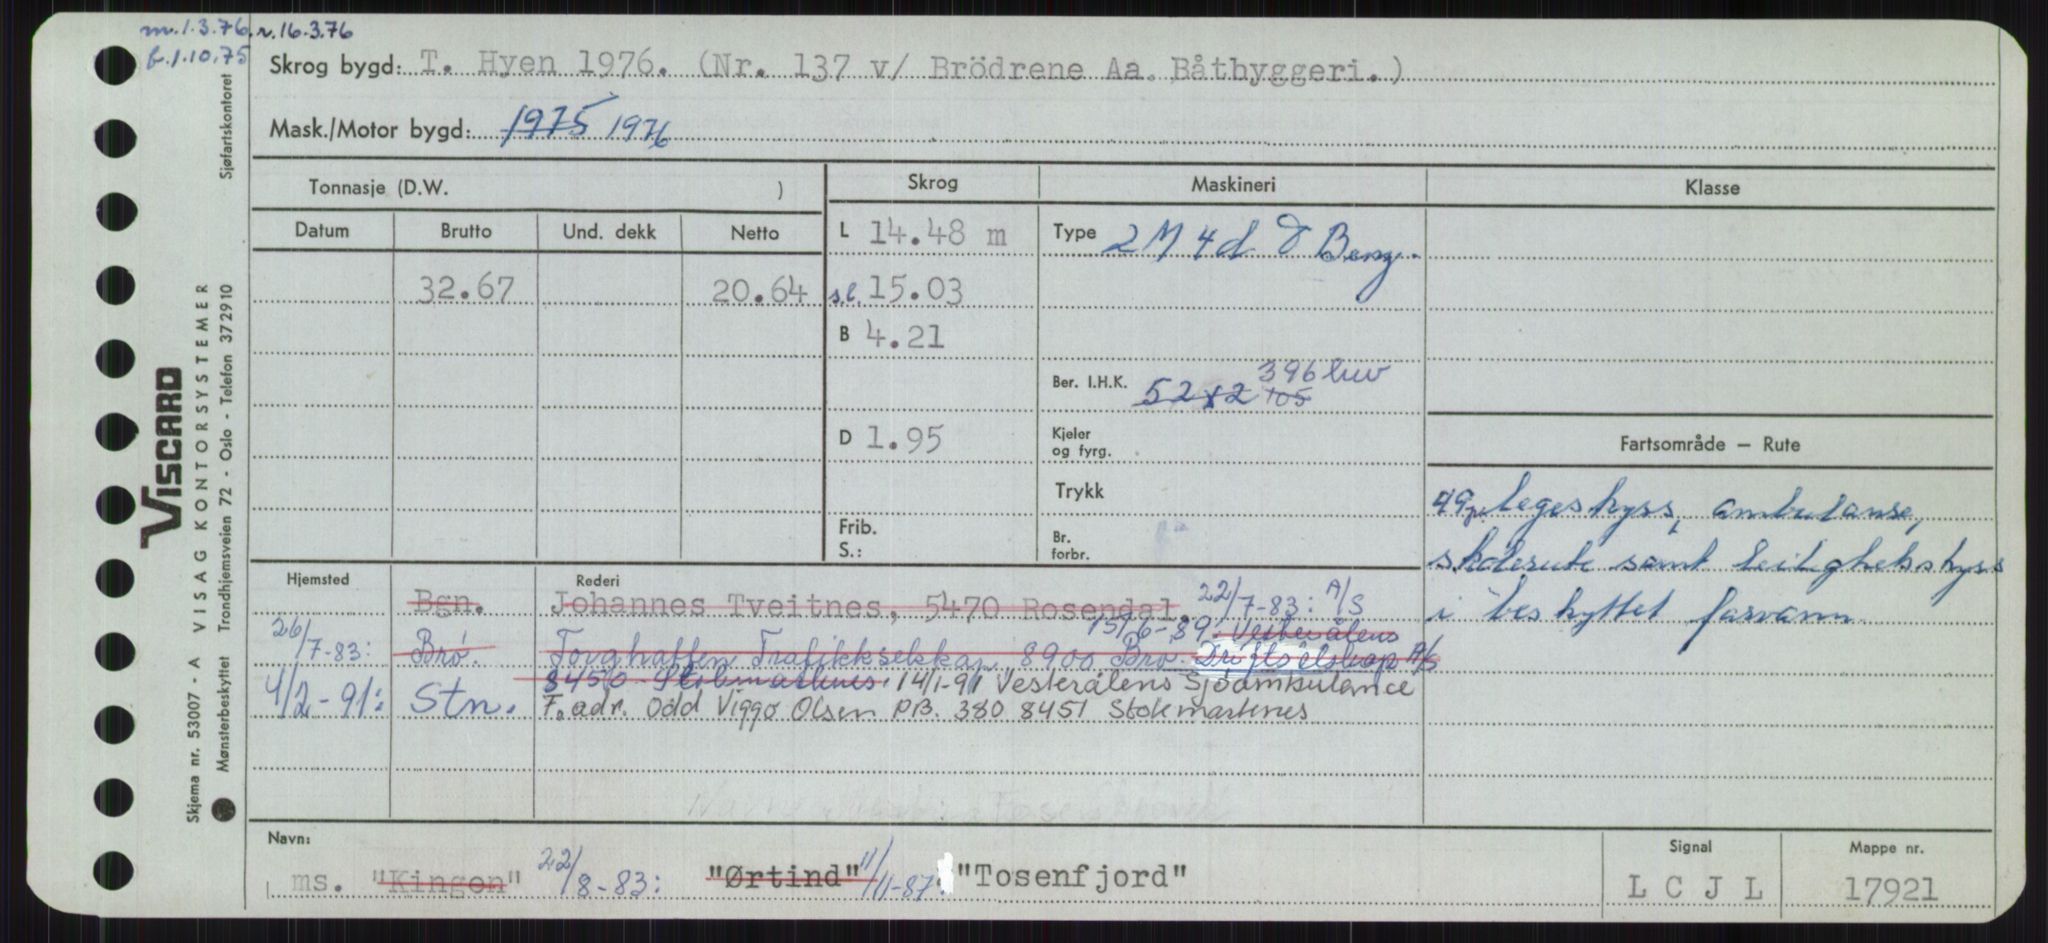 m.1.3.76. r.16.3.76
f.1.10.75
Skrog bygd: T. Hyen 1976. (Nr. 137 v/ Brödrene Aa. Båtbyggeri.)
Mask./Motor bygd: 1975 1976
Tonnasje (D.W. )
Skrog
Maskineri
Klasse
Datum Brutto Und. dekk Netto
L 14.48 m
Type 2 M 4d
32.67 20.64
s.l. 15.03
B 4.21
Ber. I.H.K. 52x2 105 396
D 1.95
Kjeler
og fyrg.
Trykk
Frib.
S.:
Br.
forbr.
Fartsområde — Rute
legeskyss, ambulanse,
skolerute samt
i beskyttet farvann
Hjemsted
Rederi
Bgn. Johannes Tveitnes, 5470 Rosendal. 22/7-83: A/S
26/7-83: Brø. Torghatten Trafikkselskap 8900 Brø. 15/6-89: Vesterålens Driftselskap A/S
4/2-91: Stn. 8450 Stokmarknes. 14/1-91 Vesterålens Sjøambulance
F.adr. Odd Viggo Olsen PB. 380 8451 Stokmarknes
Navn:
ms. "Kingen" 22/8-83: "Ørtind" 11/11-87: "Tosenfjord"
Signal
L C J L
Mappe nr.
17921
Sjøfartskontoret
VISCARD
VISAG KONTORSYSTEMER
Trondhjemsveien 72 - Oslo - Telefon 37 29 10
Skjema nr. 53007 - A
Mønsterbeskyttet